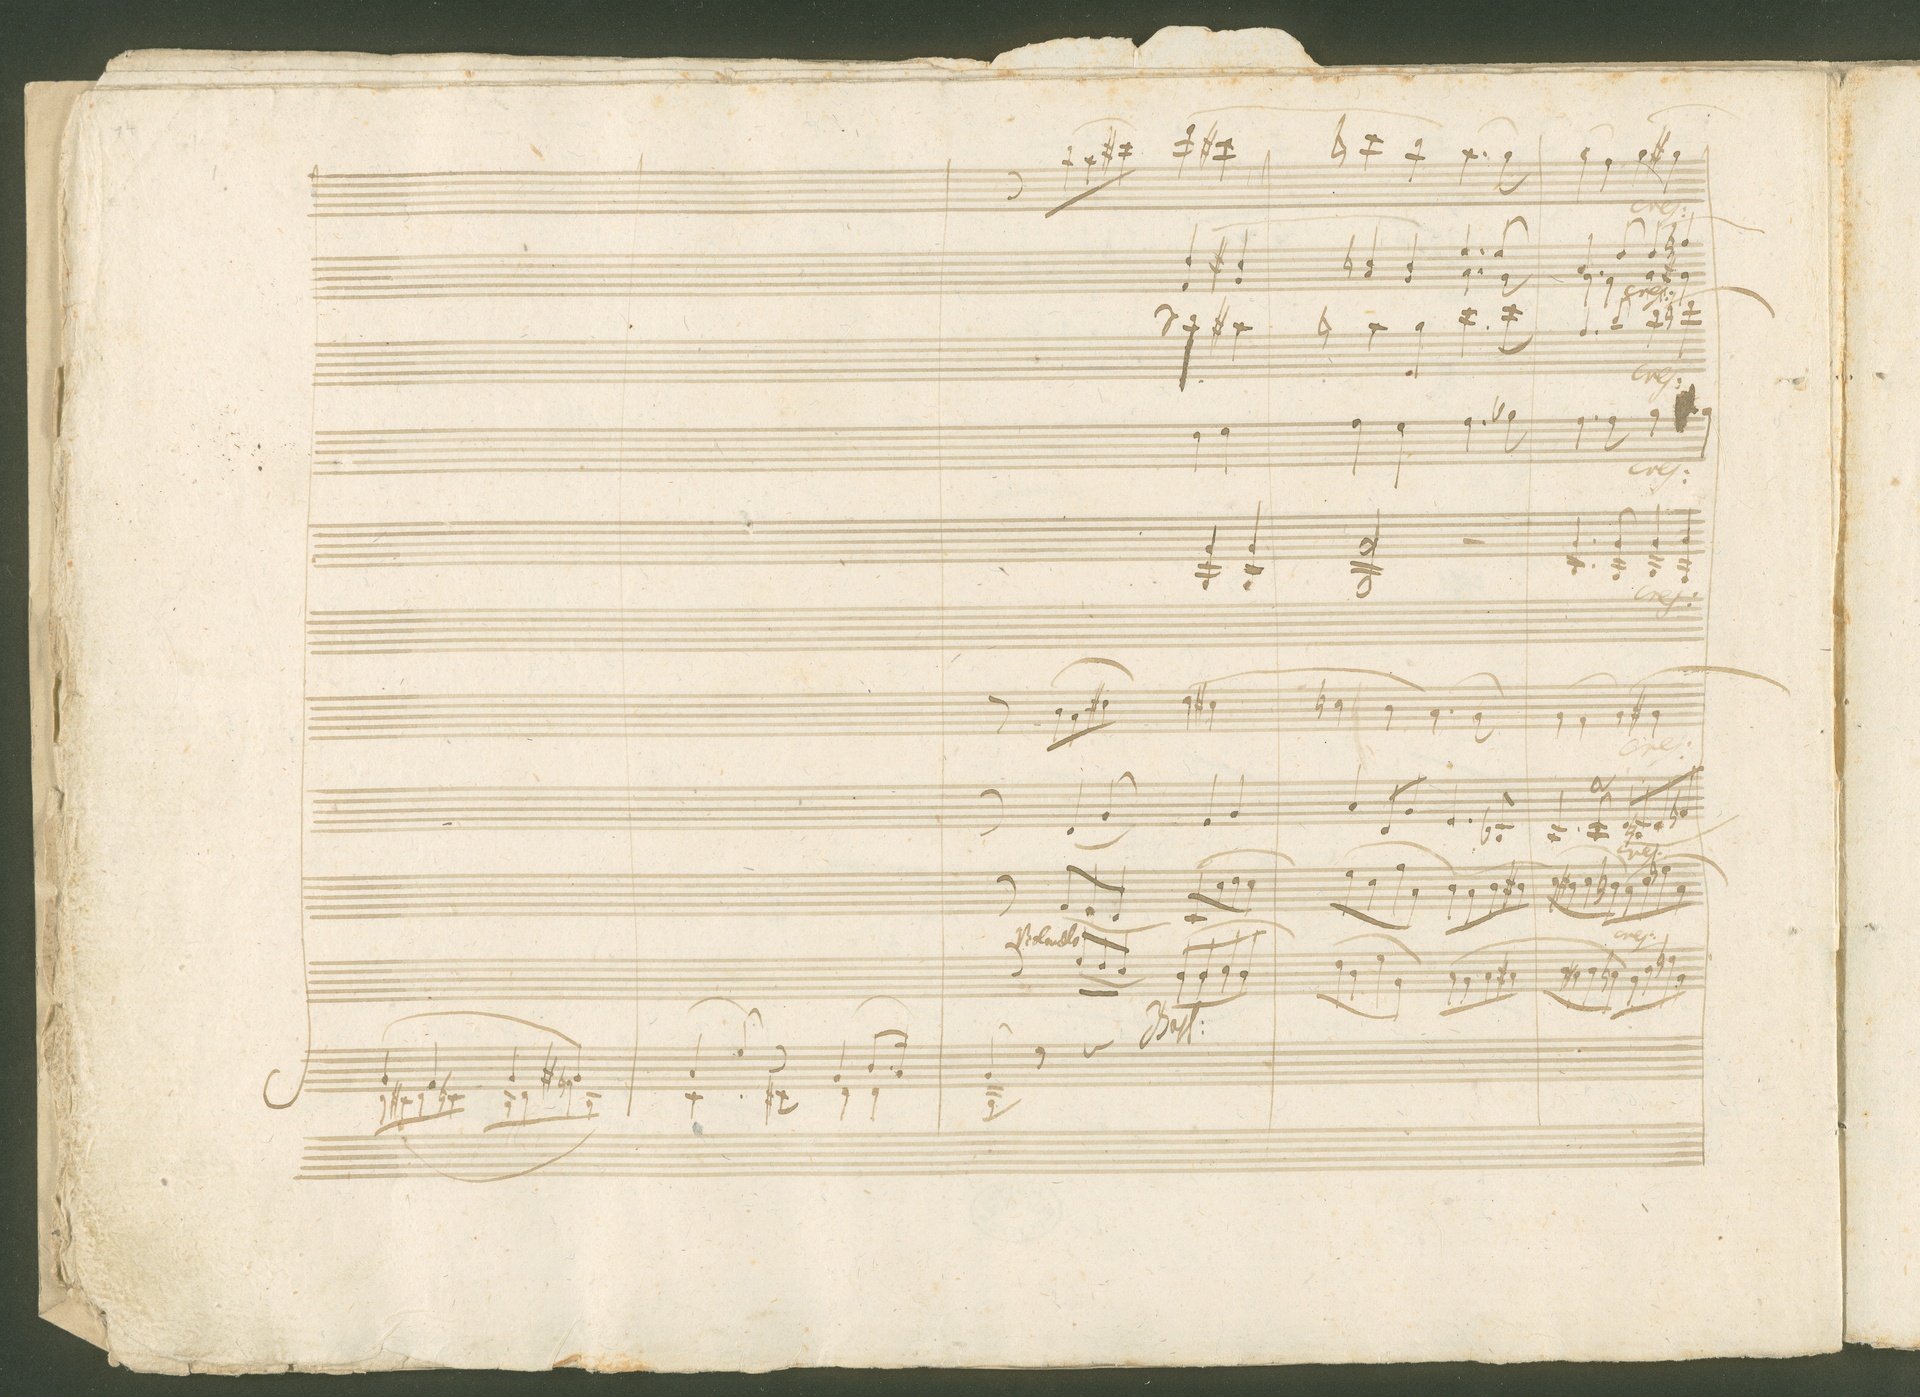 14
cres:
cres:
cres:
cres:
cres:
cres:
cres:
cres:
Violoncello
Bassi: